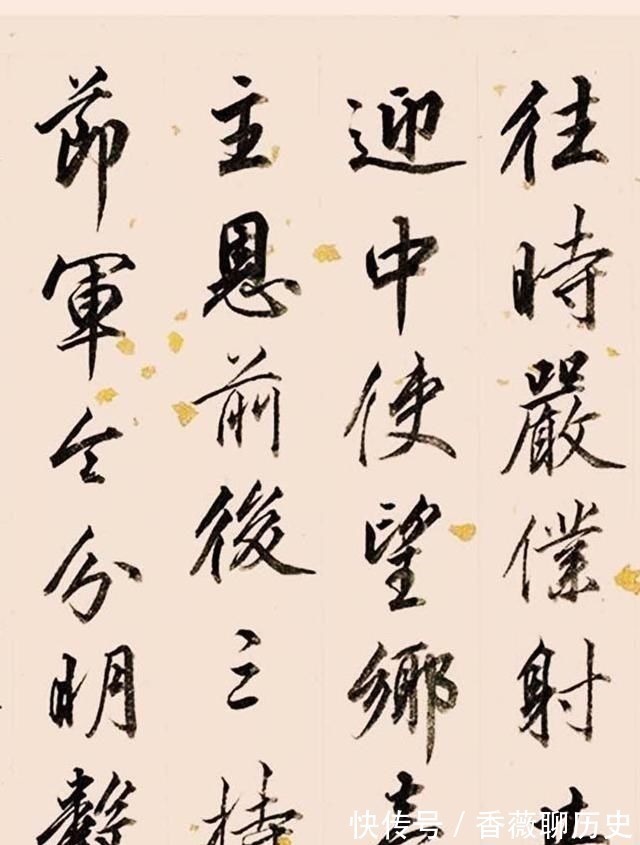 往時嚴僕射
迎中使望鄉
主恩前後三持
節軍令分明數
快传号 / 香薇聊历史